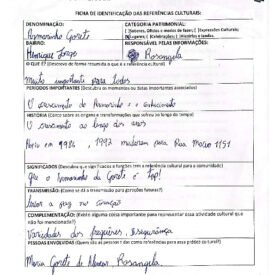 FICHA DE IDENTIFICAÇÃO DAS REFERÊNCIAS CULTURAIS:
DENOMINAÇÃO:
Armarinho Goreti
CATEGORIA PATRIMONIAL:
[ ] Saberes, ofícios e modos de fazer; [ ] Expressões Culturais;
Lugares; [ ] Celebrações; [ ] Histórias e lendas.
BAIRRO:
Henrique Jorge
RESPONSÁVEL PELAS INFORMAÇÕES:
Rosangela
O QUE É? (Descreva de forma resumida o que é a referência cultural)
Muito importante para todos
PERÍODOS IMPORTANTES (Descubra os momentos ou datas importantes associados)
O crescimento do Armarinho e o conhecimento
HISTÓRIA (Conte as origens e transformações que sofreu ao longo do tempo)
O crescimento ao longo dos anos
em 1986, 1992 mudaram para Rua 1151
SIGNIFICADOS (Descubra que significados e funções tem a referência cultural para a comunidade)
Que o Armarinho da Goreti é Top!
TRANSMISSÃO (Como se dá a transmissão para gerações futuras?)
COMPLEMENTAÇÃO: (Existe alguma coisa importante para representar essa atividade cultural que não foi mencionado)
Variedades dos fregueses e segurança
PESSOAS ENVOLVIDAS (Quem são as pessoas que são como referências para essa prática cultural?)
Maria Goreti de Alencar, Rosangela.